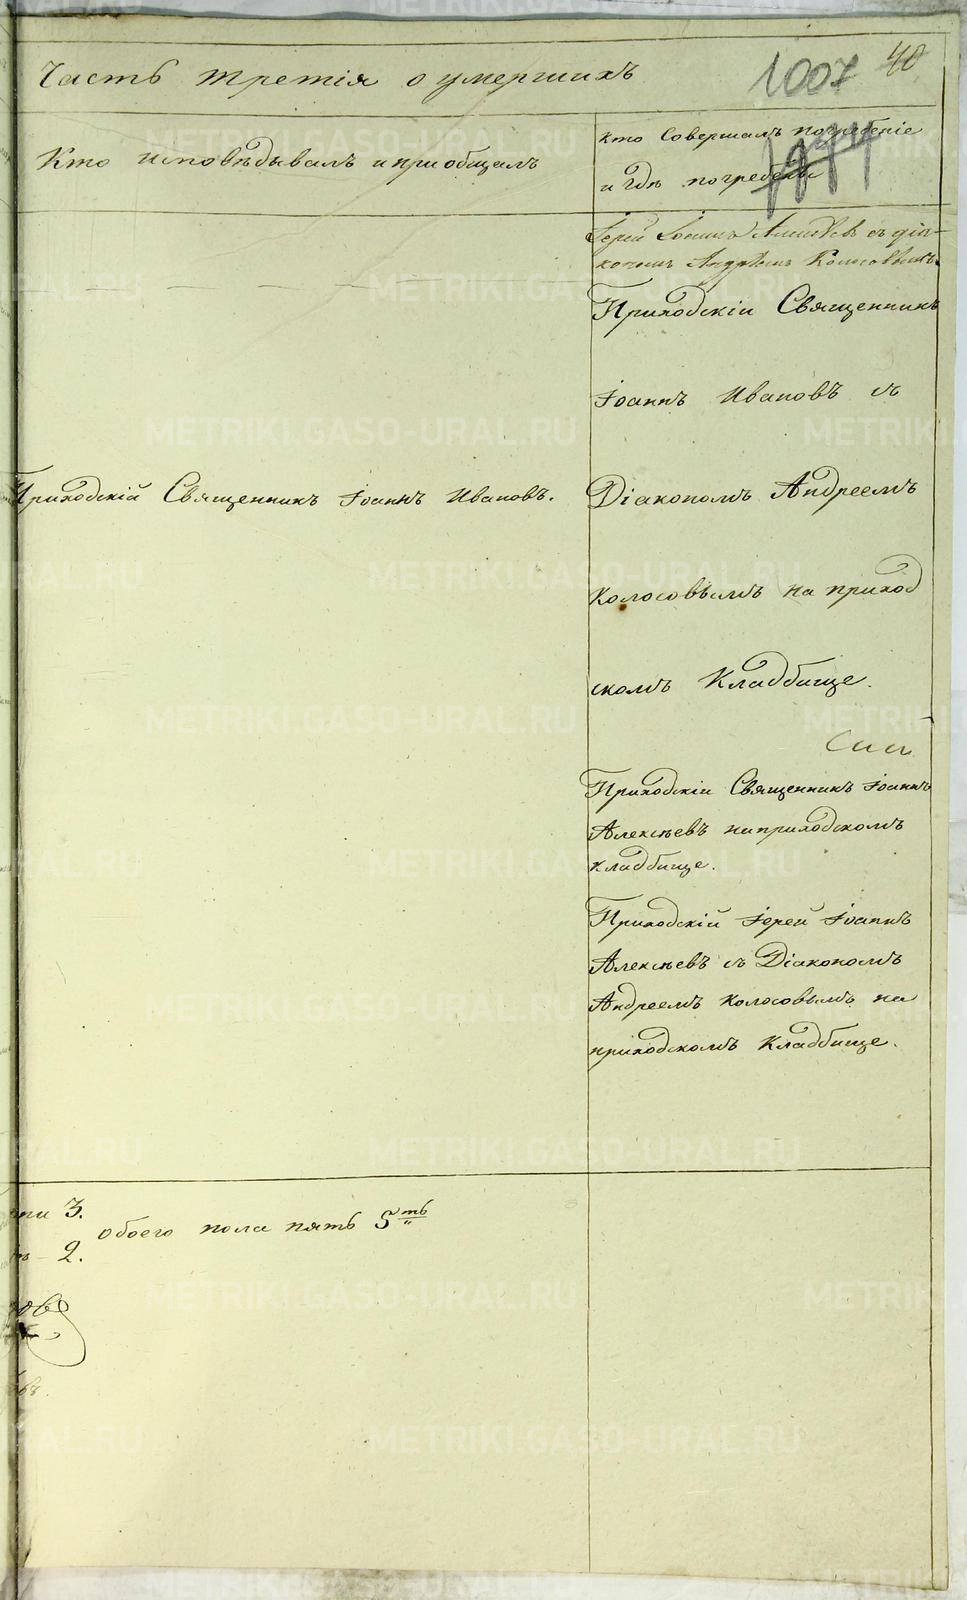 Часть третія о умершихъ
1007 40
Кто исповѣдывалъ и приобщалъ
кто Совершалъ погребеніе
и гдѣ погребены
Іерей Іоаннъ Алексѣевъ съ діа-
кономъ Андреемъ Колосовымъ.
Приходскіи Священникъ
Іоаннъ Ивановъ съ
Приходскій Священникъ Іоаннъ Ивановъ.
Діакономъ Андреемъ
Колосовымъ на приход
скомъ Кладбище.
Приходскіи Священникъ Іоаннъ
Алексѣевъ на приходскомъ
кладбище.
Приходскій Іерей Іоаннъ
Алексѣевъ съ Діакономъ
Андреемъ Колосовымъ на
приходскомъ Кладбище.
3.
обоего пола пять 5ть
2.
METRIKI.GASO-URAL.RU